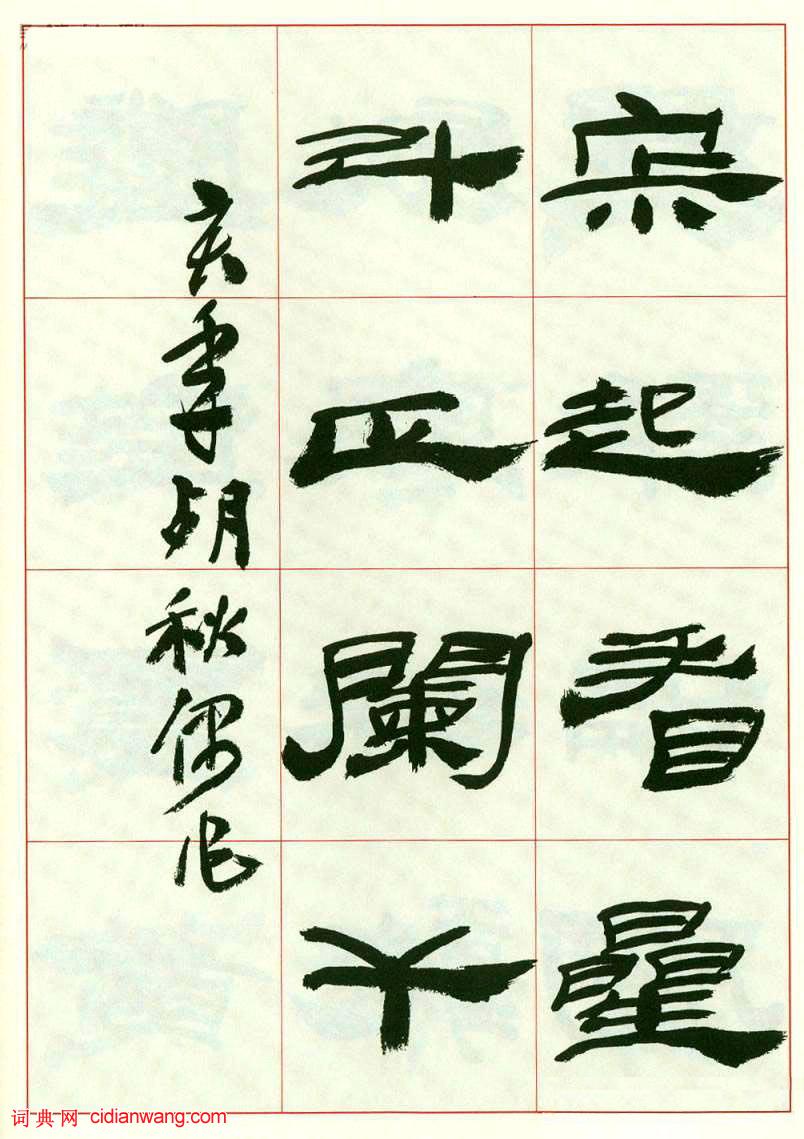 寂起看曐
斗正闌干
亥年残秋偶作
词典网 cidianwang.com